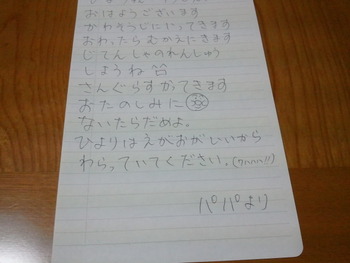 おはようございます
かわそうじにいってきます
おわったらむかえにきます
じてんしゃのれんしゅう
しようね
さんぐらすかってきます
おたのしみに
ないたらだめよ。
ひよりはえがおがいいから
わらっていてください。
パパより